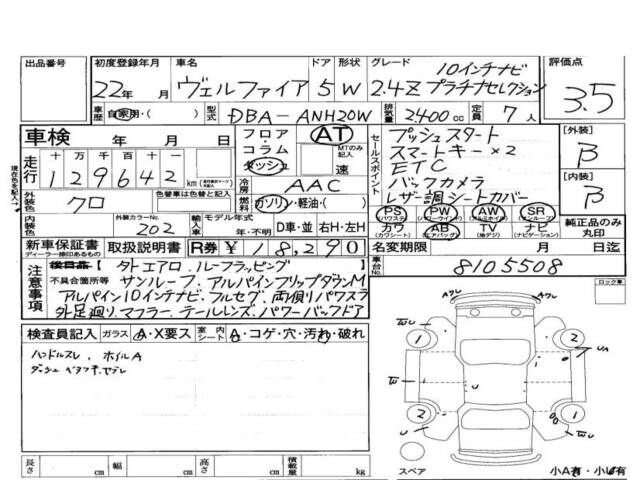 出品番号
初度登録年月 22年 月
車名 ヴェルファイア
ドア 5
形状 W
グレード 10インチナビ
2.4Z プラチナセレクション
評価点 3.5
車歴 自家用・( )
型式 DBA-ANH20W
排気量 2400cc
定員 7人
車検 年 月 日
フロア AT
コラム
ダッシュ
MTのみ記入
速
走行 十万千百十一
129642 km
現在色を記入→
外装色 クロ
色替車は色替と記入
冷房 AAC
燃料 ガソリン・軽油・( )
内装色
外装カラーNo. 202
輸入車
モデル年式 年・不明
D車・並 右H・左H
セールスポイント
プッシュスタート
スマートキー×2
ETC
バックカメラ
レザー調シートカバー
PS (パワステ) PW (パワーウインドウ) AW (アルミホイル) SR (サンルーフ)
カワ (カワシート) AB (エアバッグ) TV (地デジ) ナビ (ナビゲーション)
[外装] B
[内装] B
純正品のみ丸印
新車保証書 取扱説明書 R券 ¥18,290
ディーラー捺印あるもの
名変期限 月 日迄
車台No. 8105508
注意事項
不具合箇所等
外エアロ、ルーフラッピング
サンルーフ、アルパインフリップダウンM
アルパイン10インチナビ、フルセグ、両側パワスラ
外足廻り、マフラー、テールレンズ、パワーバックドア
ロック車
検査員記入 ガラス A・X要ス 室内シート A・コゲ・穴・汚れ・破れ
ハンドルスレ、ホイルA
長さ cm 幅 cm 高さ cm 積載量 kg
Aワレ Aワレ
W 1 2 UA
W U
2 1
U W U
スペア
小A有・小U有